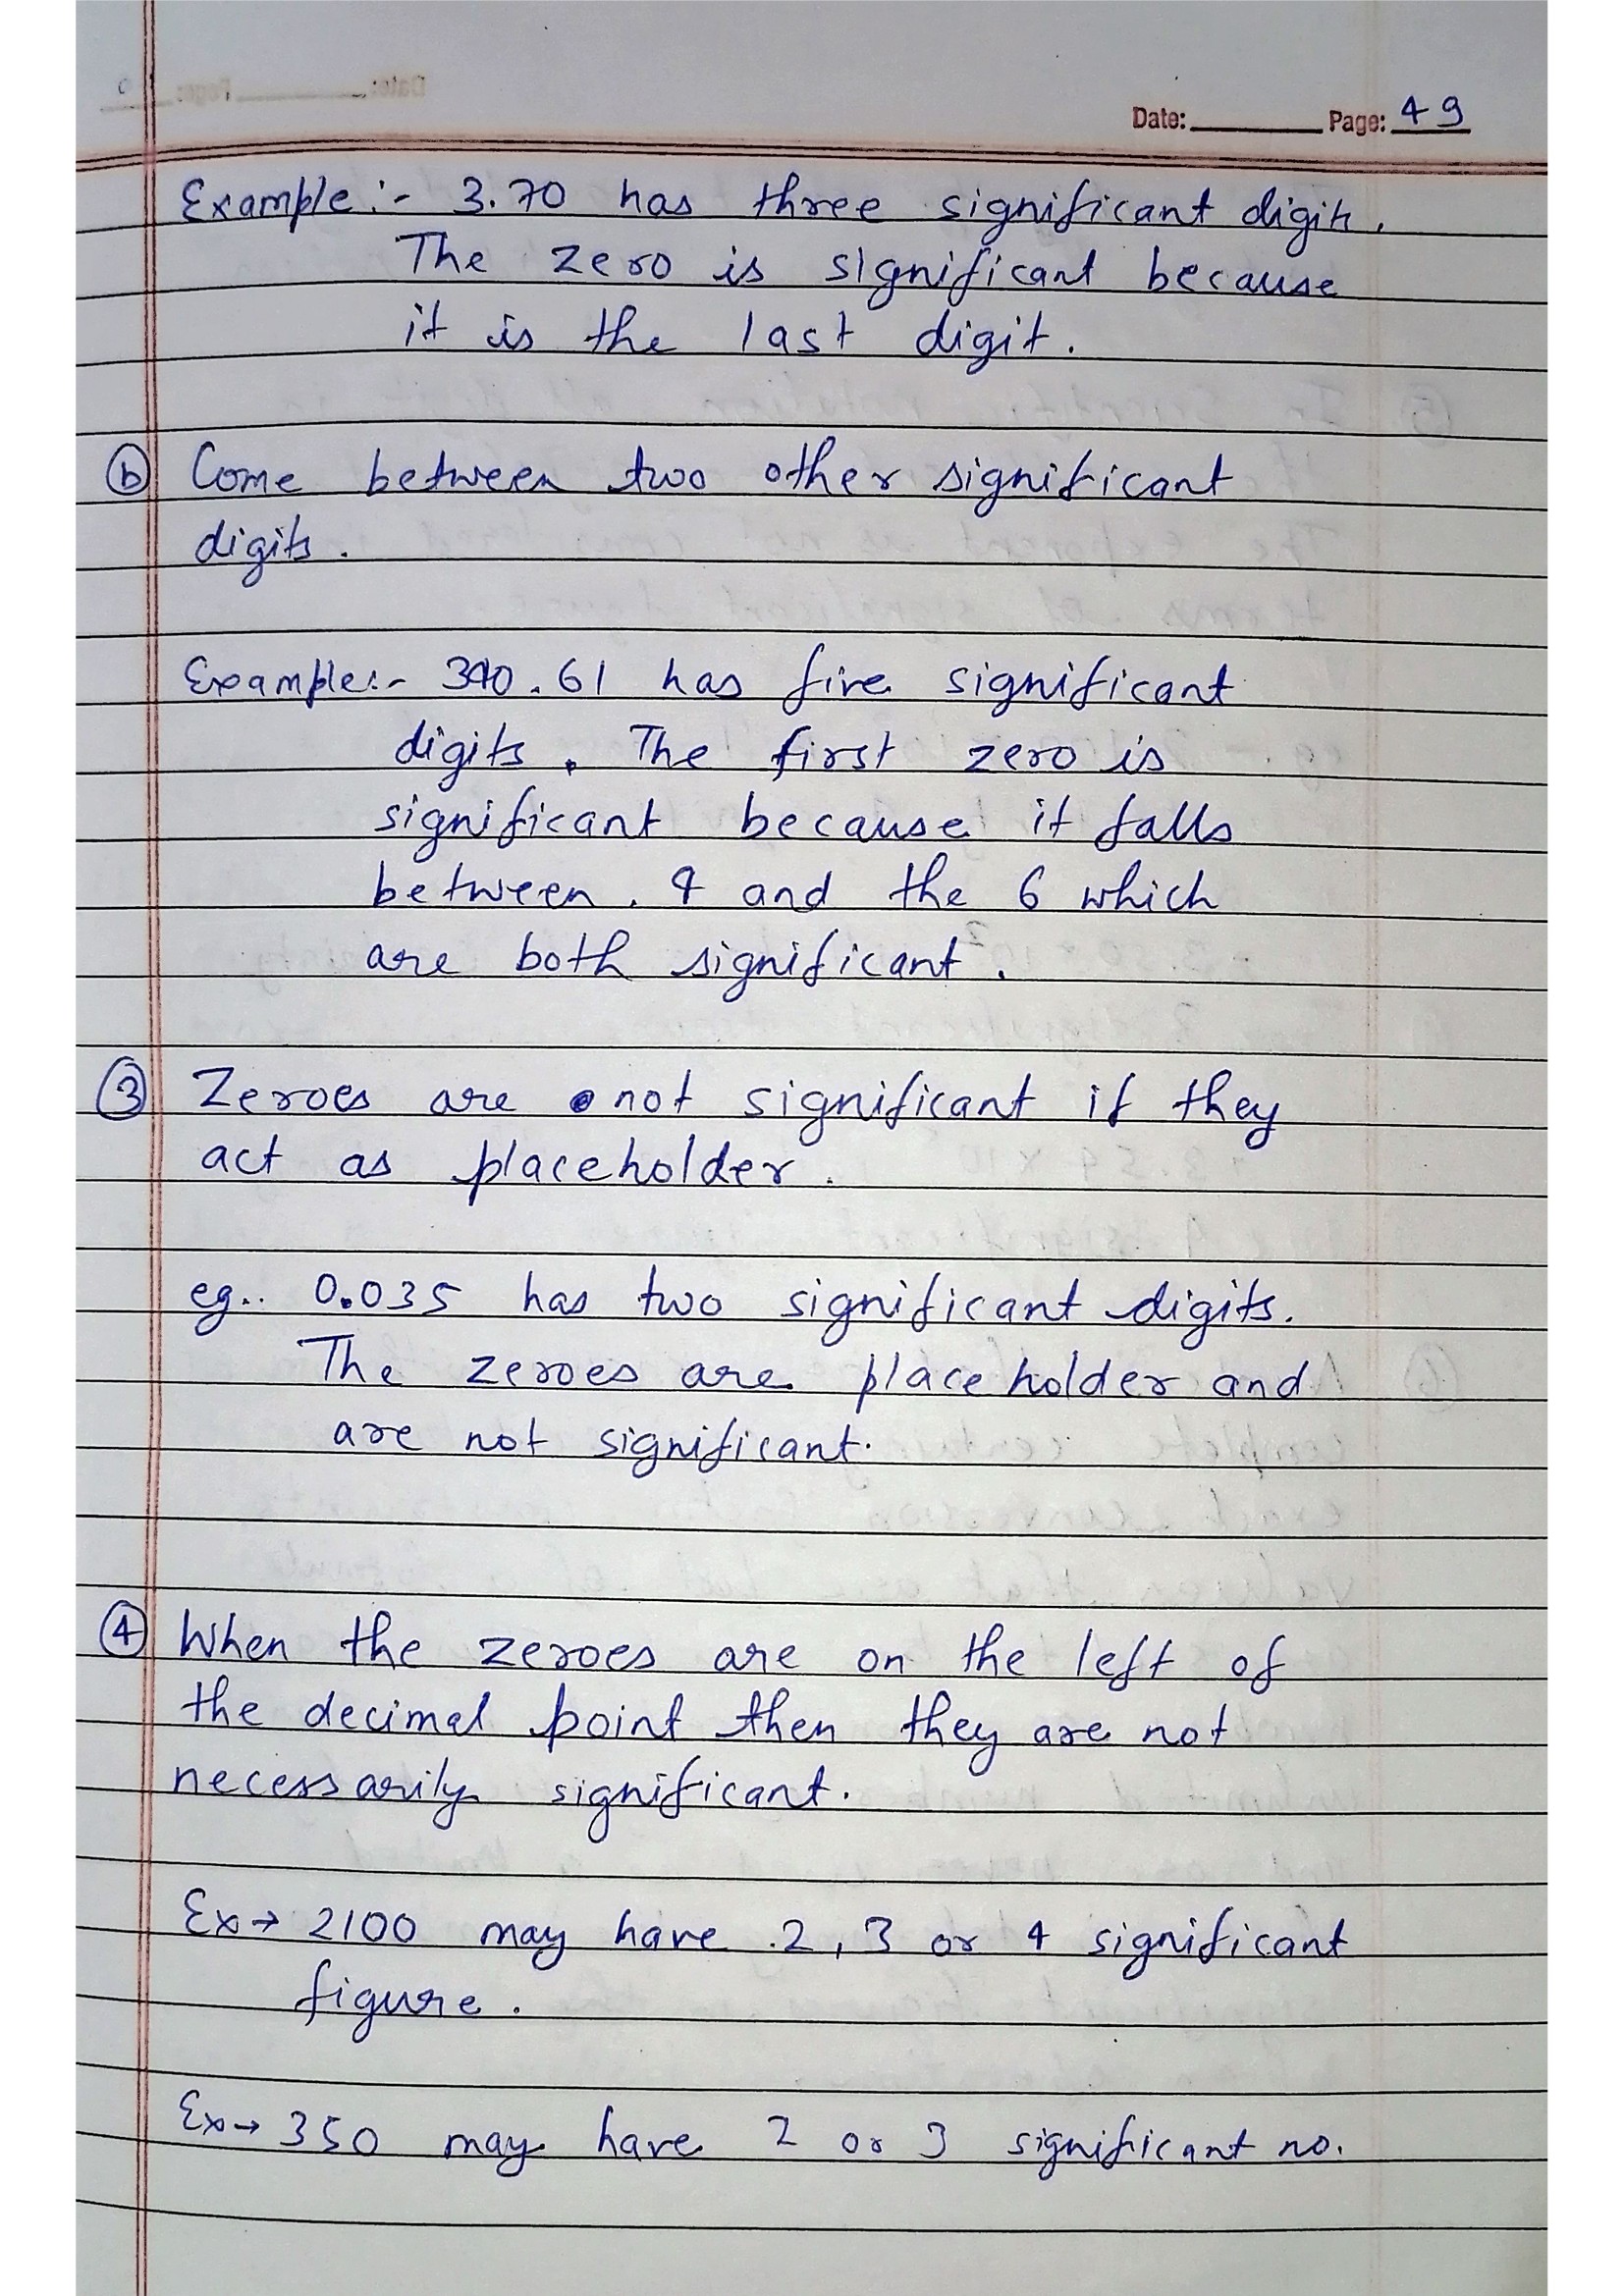 Date: Page: 49
Example:- 3.70 has three significant digits.
The zero is significant because
it is the last digit.
b Come between two other significant
digits.
Example:- 340.61 has five significant
digits. The first zero is
significant because it falls
between 4 and the 6 which
are both significant.
3 Zeroes are not significant if they
act as placeholder.
eg.. 0.035 has two significant digits.
The zeroes are placeholder and
are not significant.
4 When the zeroes are on the left of
the decimal point then they are not
necessarily significant.
Ex→ 2100 may have 2, 3 or 4 significant
figure.
Ex→ 350 may have 2 or 3 significant no.